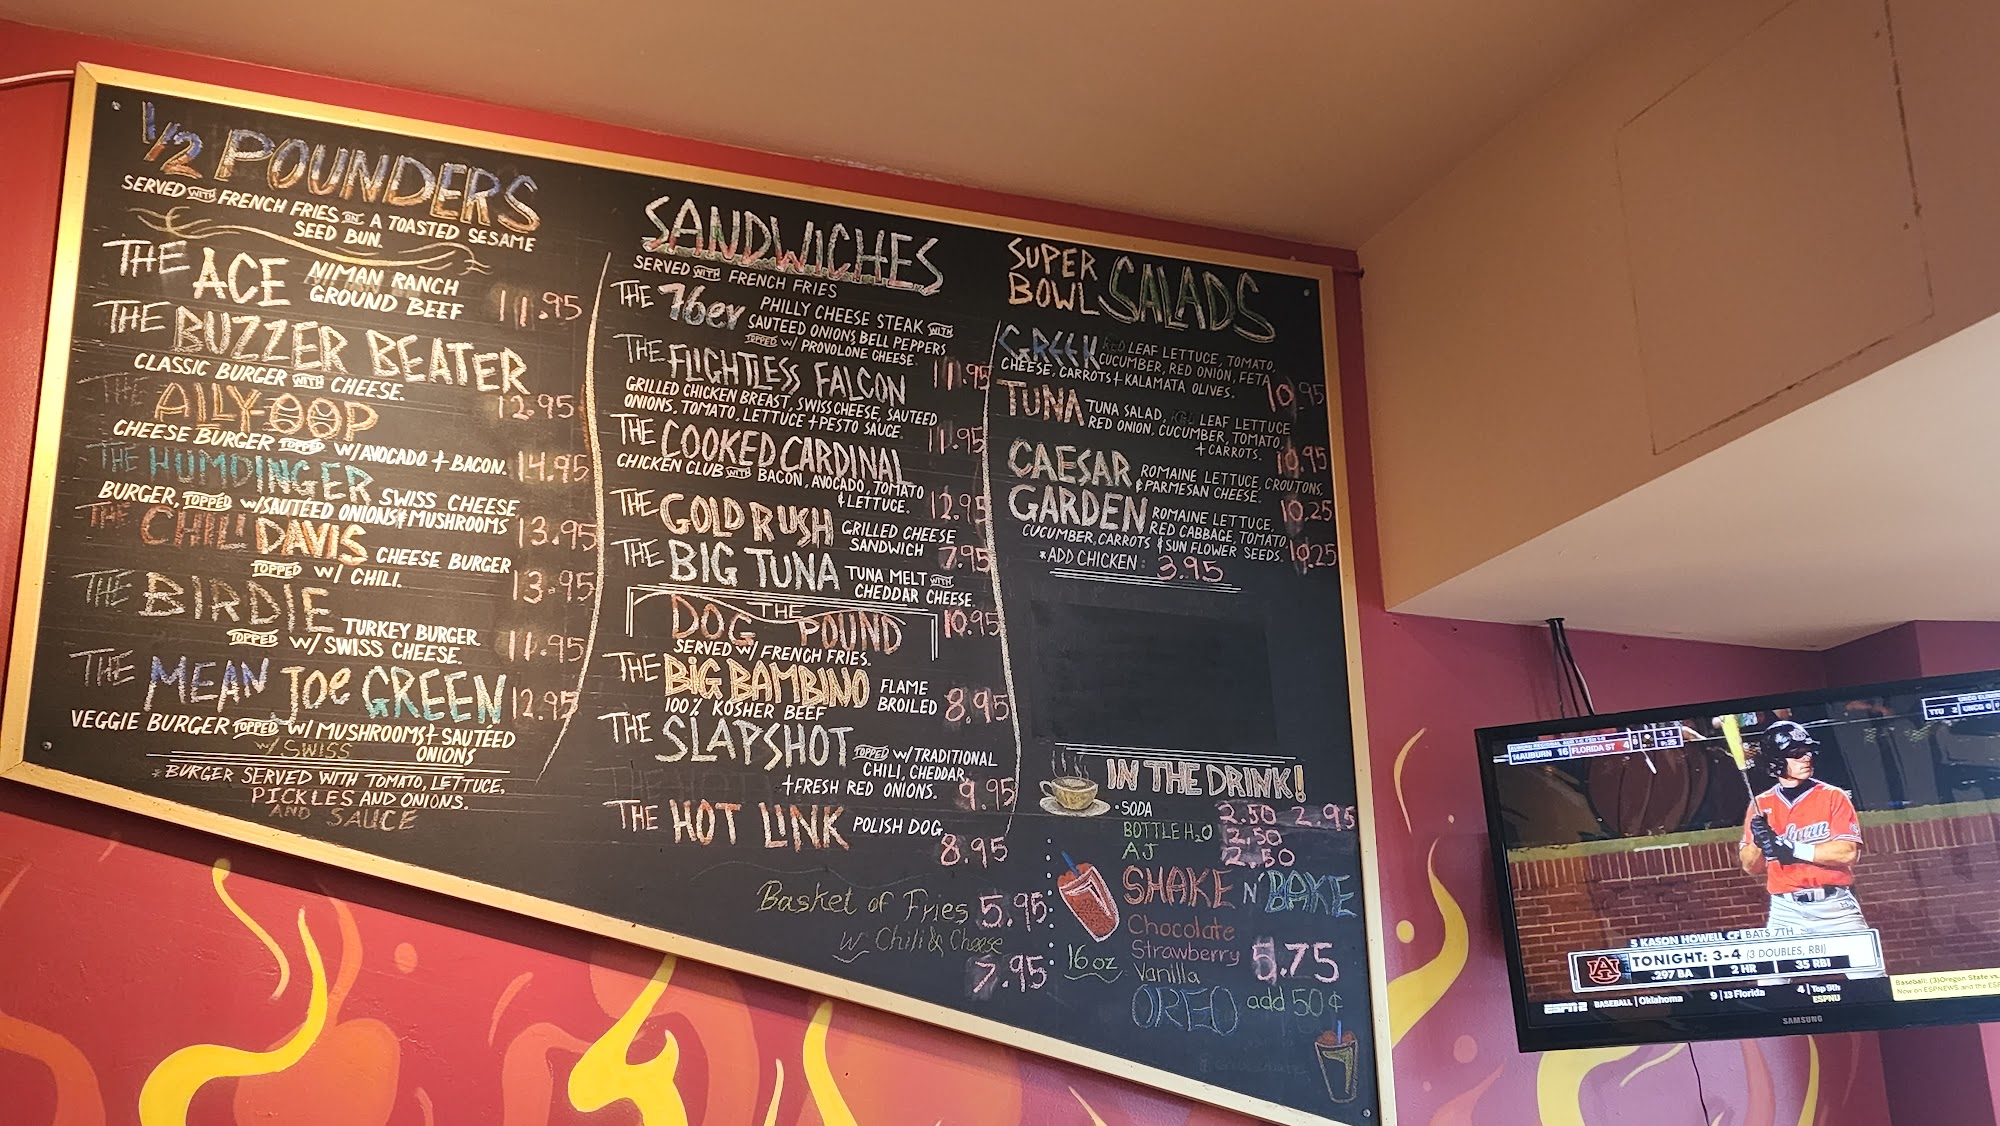 1/2 POUNDERS
SERVED WITH FRENCH FRIES ON A TOASTED SESAME
SEED BUN.
THE ACE NIMAN RANCH
GROUND BEEF 11.95
THE BUZZER BEATER
CLASSIC BURGER WITH CHEESE. 12.95
THE ALLY-OOP
CHEESE BURGER TOPPED W/AVOCADO + BACON. 14.95
THE HUMDINGER SWISS CHEESE
BURGER, TOPPED W/SAUTÉED ONIONS & MUSHROOMS 13.95
THE CHILI DAVIS CHEESE BURGER
TOPPED W/ CHILI. 13.95
THE BIRDIE TURKEY BURGER
TOPPED W/ SWISS CHEESE. 11.95
THE MEAN JOE GREEN 12.95
VEGGIE BURGER TOPPED W/ MUSHROOMS + SAUTÉED
W/ SWISS ONIONS
* BURGER SERVED WITH TOMATO, LETTUCE,
PICKLES AND ONIONS.
AND SAUCE
SANDWICHES
SERVED WITH FRENCH FRIES
THE 76er PHILLY CHEESE STEAK WITH
SAUTEED ONIONS BELL PEPPERS
TOPPED W/ PROVOLONE CHEESE. 11.95
THE FLIGHTLESS FALCON
GRILLED CHICKEN BREAST, SWISS CHEESE, SAUTEED
ONIONS, TOMATO, LETTUCE + PESTO SAUCE. 11.95
THE COOKED CARDINAL
CHICKEN CLUB WITH BACON, AVOCADO, TOMATO
& LETTUCE. 12.95
THE GOLD RUSH GRILLED CHEESE
SANDWICH 7.95
THE BIG TUNA TUNA MELT WITH
CHEDDAR CHEESE. 10.95
THE
DOG POUND
SERVED W/ FRENCH FRIES.
THE BIG BAMBINO FLAME
BROILED 8.95
100% KOSHER BEEF
THE SLAPSHOT TOPPED W/TRADITIONAL
CHILI, CHEDDAR,
+ FRESH RED ONIONS. 9.95
THE HOT LINK POLISH DOG 8.95
Basket of Fries 5.95
W/ Chili & Cheese
7.95
SUPER
BOWL SALADS
GREEK RED LEAF LETTUCE, TOMATO,
CUCUMBER, RED ONION, FETA
CHEESE, CARROTS + KALAMATA OLIVES. 10.95
TUNA TUNA SALAD, RED LEAF LETTUCE
RED ONION, CUCUMBER, TOMATO,
+ CARROTS. 10.95
CAESAR ROMAINE LETTUCE, CROUTONS,
& PARMESAN CHEESE. 10.25
GARDEN ROMAINE LETTUCE,
RED CABBAGE, TOMATO,
CUCUMBER, CARROTS & SUN FLOWER SEEDS. 10.25
*ADD CHICKEN: 3.95
IN THE DRINK!
• SODA 2.50 2.95
BOTTLE H2O 2.50
AJ 2.50
SHAKE N' BAKE
Chocolate
Strawberry
Vanilla
16 oz 5.75
OREO add 50¢
14 AUBURN 16 FLORIDA ST 4
TTU 2 UNCG 0
Auburn
5 KASON HOWELL CF BATS 7TH
TONIGHT: 3-4 (3 DOUBLES, RBI)
.297 BA 2 HR 35 RBI
ESPN2 BASEBALL | Oklahoma 9 | 13 Florida 4 | Top 9th
ESPNU
Baseball: (3)Oregon State vs.
Now on ESPNEWS and the ESP
SAMSUNG